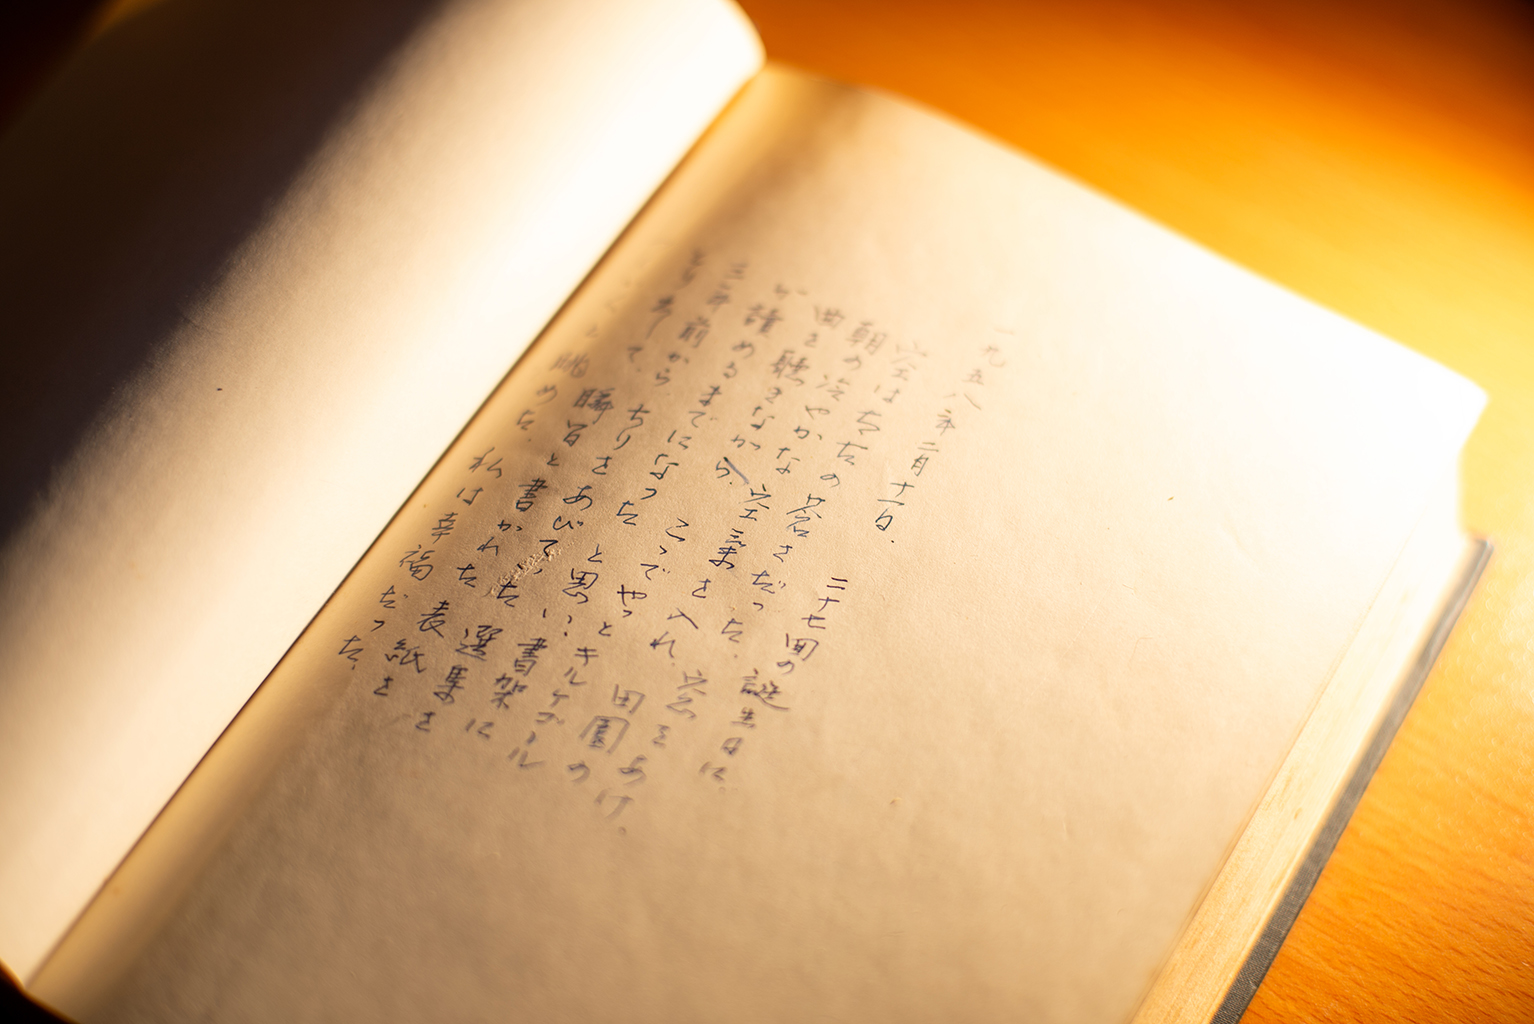 一九五八年二月十一日。 二十七回の誕生日に。
空は の蒼さだった。窓をあけ、
朝の冷やかな空氣を入れ、田園の
曲を聴きながら、こゝでやっとキルケゴール
が讀めるまでになったと思い、書架に
三年前からちりをあびていた選集を
とり出して、瞬間と書かれた表紙を
くと眺めた。私は幸福だった。